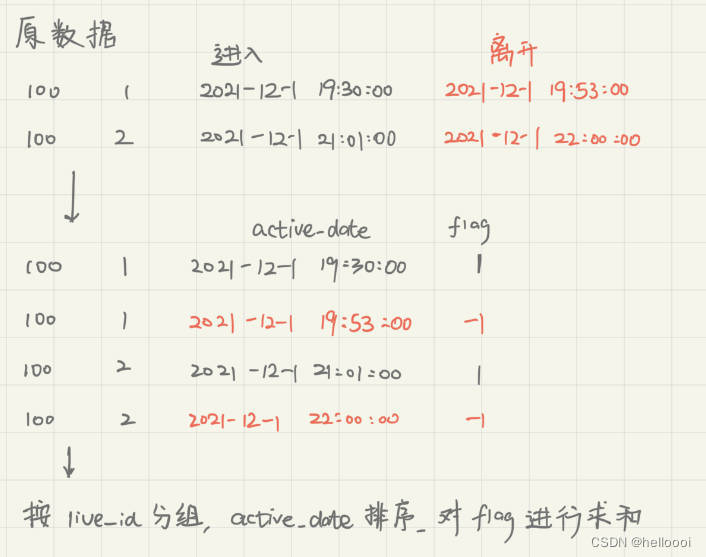 原数据
进入 离开
100 1 2021-12-1 19:30:00 2021-12-1 19:53:00
100 2 2021-12-1 21:01:00 2021-12-1 22:00:00
active_date flag
100 1 2021-12-1 19:30:00 1
100 1 2021-12-1 19:53:00 -1
100 2 2021-12-1 21:01:00 1
100 2 2021-12-1 22:00:00 -1
按 live_id 分组, active_date 排序_ 对 flag 进行求和
CSDN @helloooi